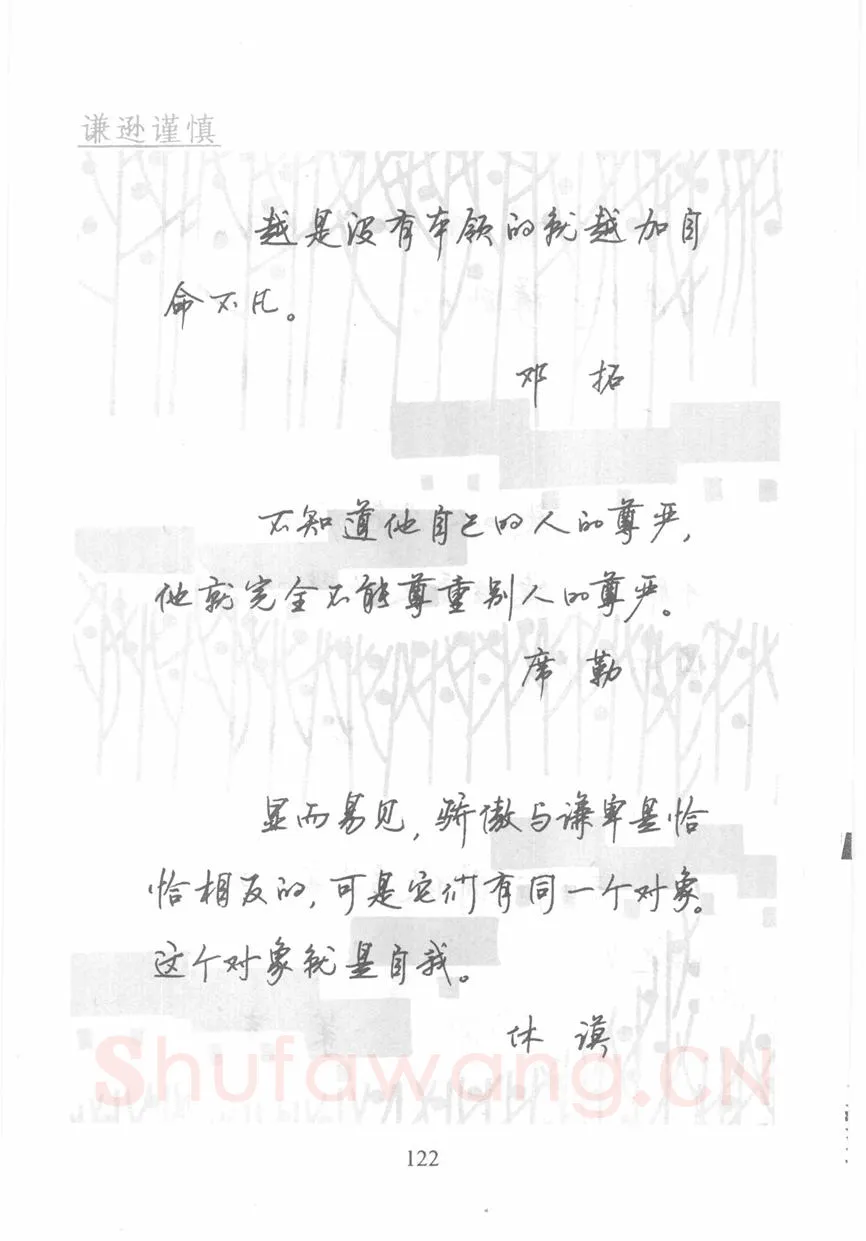 谦逊谨慎
越是没有本领的就越加自
命不凡。
邓 拓
不知道他自己的人的尊严,
他就完全不能尊重别人的尊严。
席 勒
显而易见,骄傲与谦卑是恰
恰相反的,可是它们有同一个对象。
这个对象就是自我。
休 谟
Shufawang.CN
122